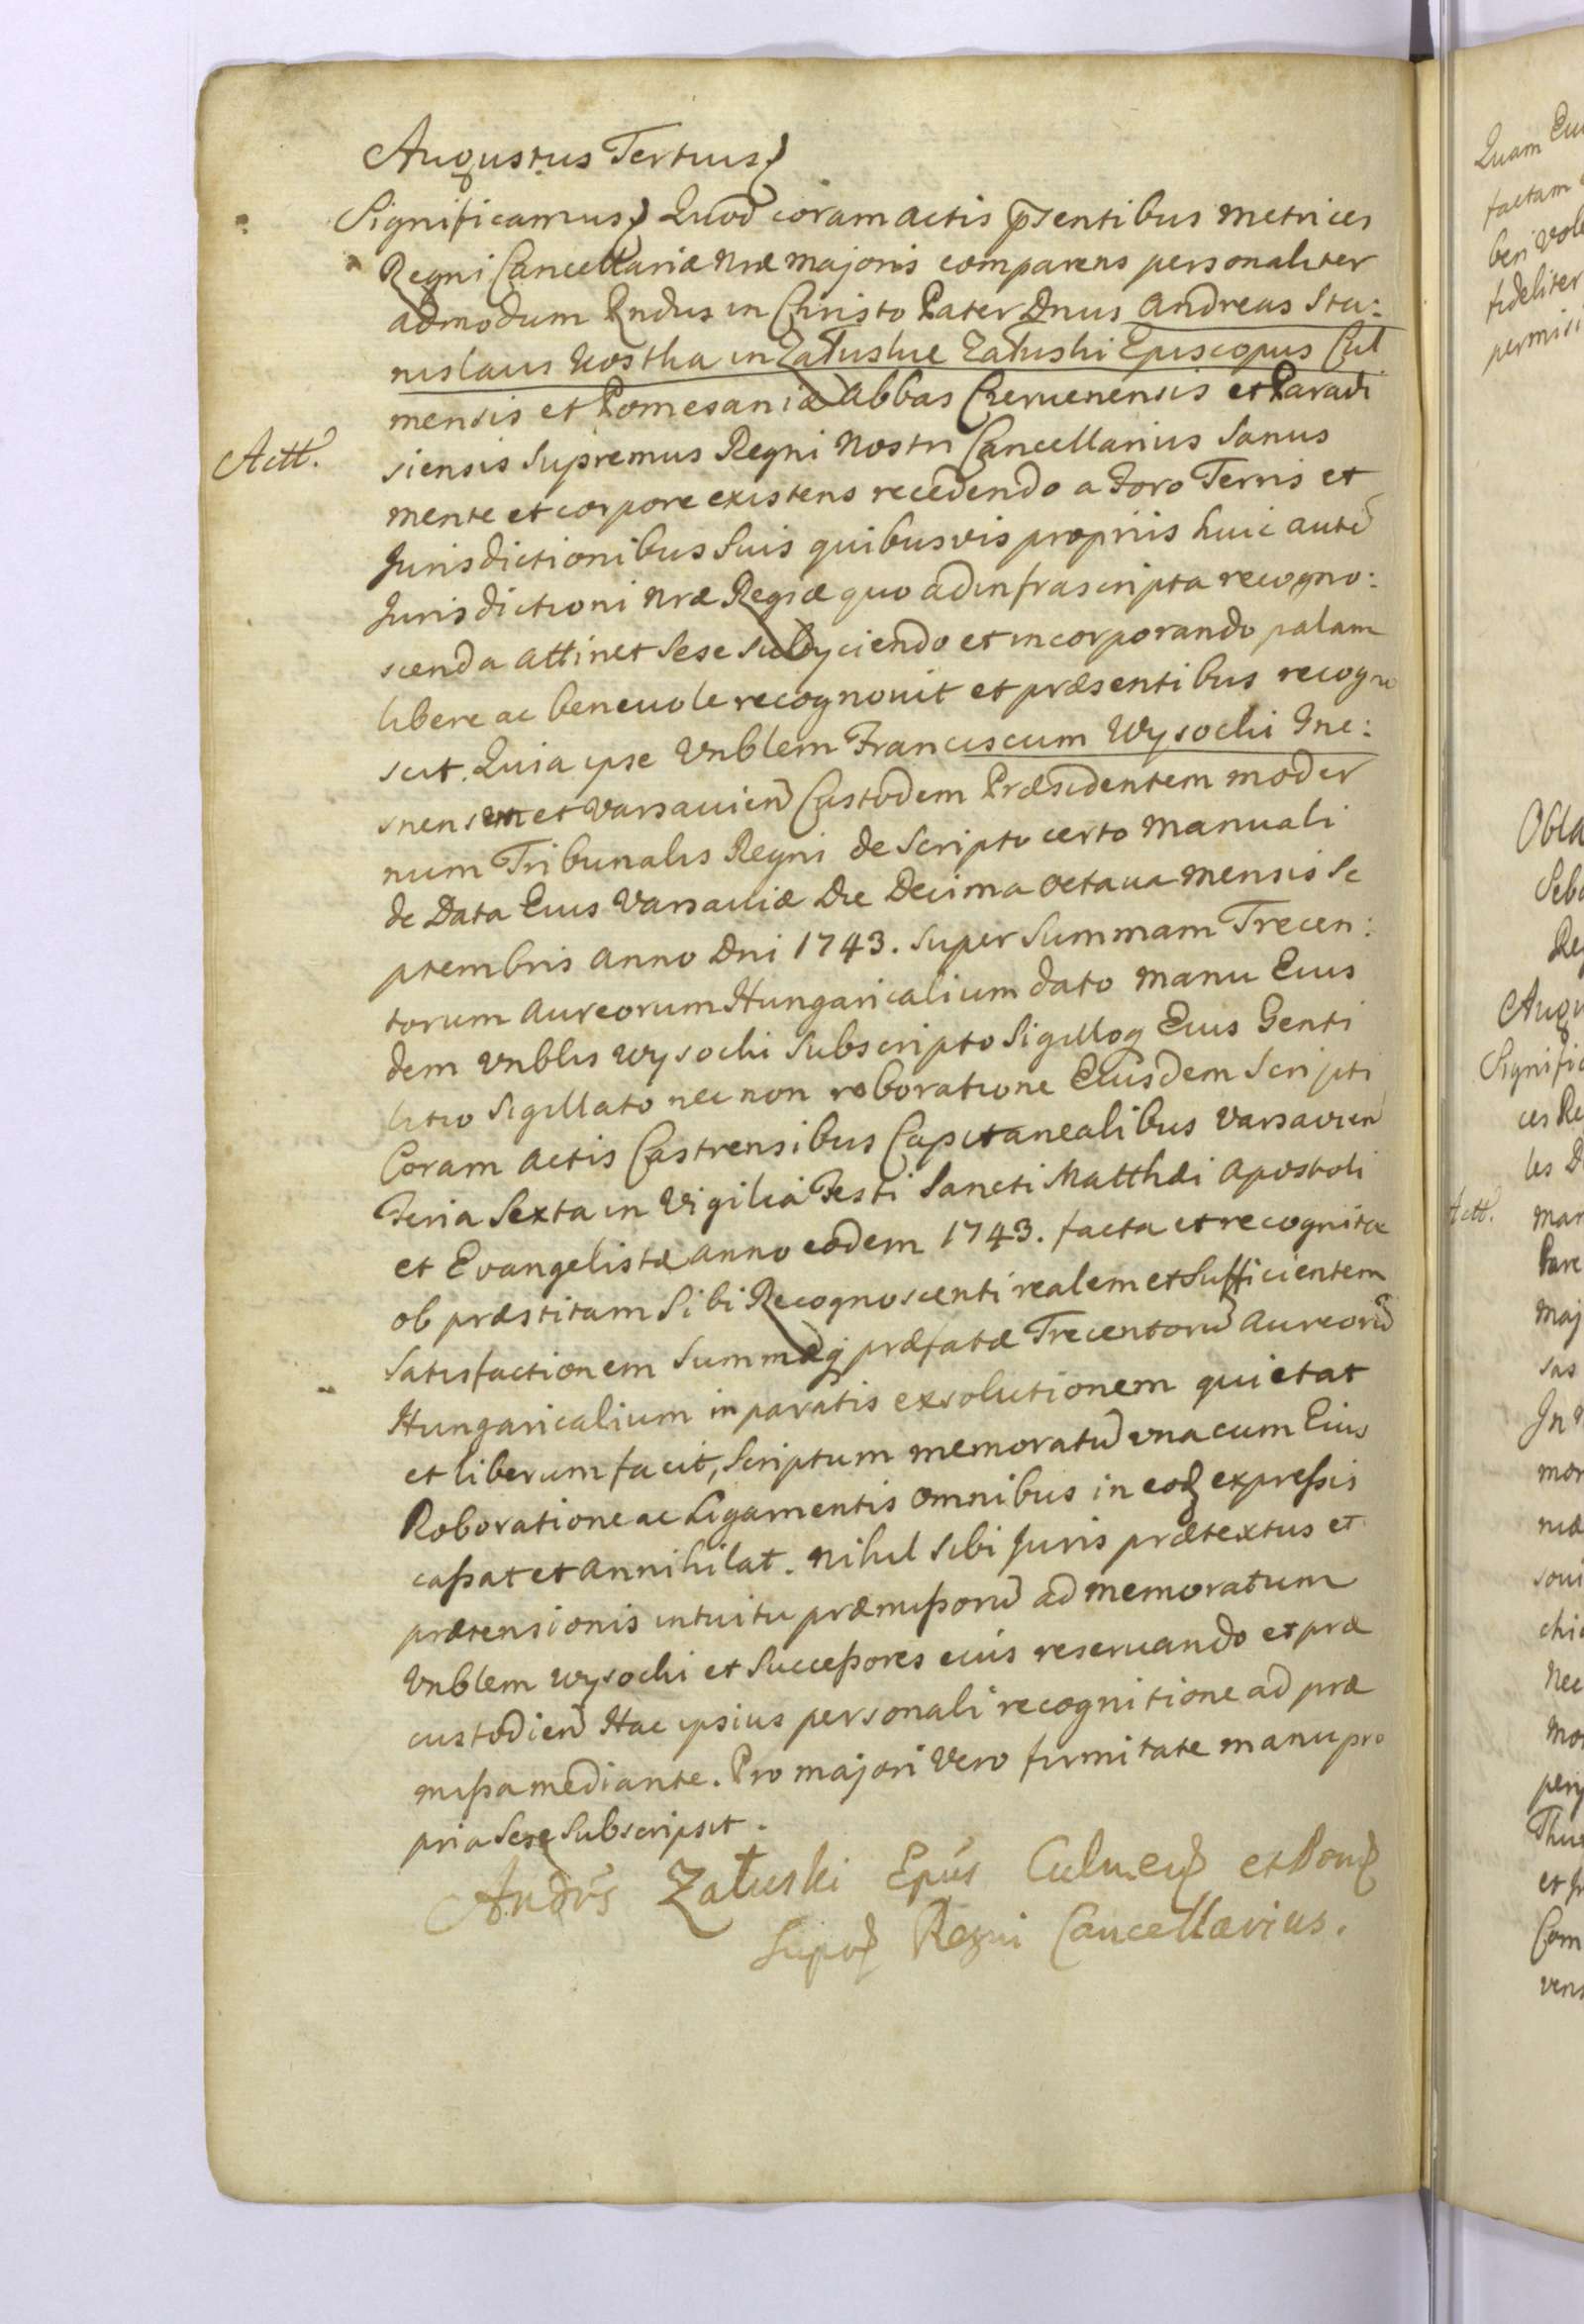 Augustus Tertius
Significamus Quod coram actis p̃sentibus metrices
Regni Cancellariæ nræ majoris comparens personaliter
admodum Rndus in Christo Pater Dnus Andreas Sta:
nislaus Kostka in Załuskie Załuski Episcopus Cul
mensis et Pomesaniæ Abbas Czerwenensis et Paradi
Actt.
siensis Supremus Regni Nostri Cancellarius Sanus
mente et corpore existens recedendo a Foro Terris et
Jurisdictionibus Suis quibusvis propriis huic autẽ
Jurisdictioni nræ Regiæ quo ad infrascripta recogno:
scenda attinet Sese subyciendo et incorporando palam
libere ac beneuole recognouit et præsentibus recogno
scit. Quia ipse Vnblem Franciscum Wysocki
et Varsauien̄ Custodem Præsidentem moder
num Tribunalis Regni de Scripto certo manuali
de Data Eius Varsauiæ Die Decima octaua mensis Se
ptembris Anno Dni 1743. Super Summam Trecen:
torum Aureorum Hungaricalium dato manu Eius
dem Vnblis Wysocki Subscripto Sigilloq Eius Genti
litio Sigillato nec non roboratione Eiusdem Scripti
Coram Actis Castrensibus Capitanealibus Varsavien̄
Feria Sexta in Vigilia Festi Sancti Matthæi Apostoli
et Evangelistæ anno eodem 1743. facta et recognita
ob præstitam Sibi Recognoscenti realem et Sufficientem
Satisfactionem Summæq præfatæ Trecentorũ Aureorũ
Hungaricalium in paratis exsolutionem quietat
et liberum facit, Scriptum memoratũ vna cum Eius
Roboratione ac Ligamentis omnibus in eod expreßis
caßat et annihilat. Nihil Sibi Juris prætextus et
prætensionis intuitu præmißorũ ad memoratum
Vnblem Wysocki et Succeßores eius reseruando et præ
custodien̄ Hac ipsius personali recognitione ad præ
mißa mediante. Pro majori Vero firmitate manu pro
pria Sese Subscripsit.
Załuski Epus et
Regni Cancellarius.